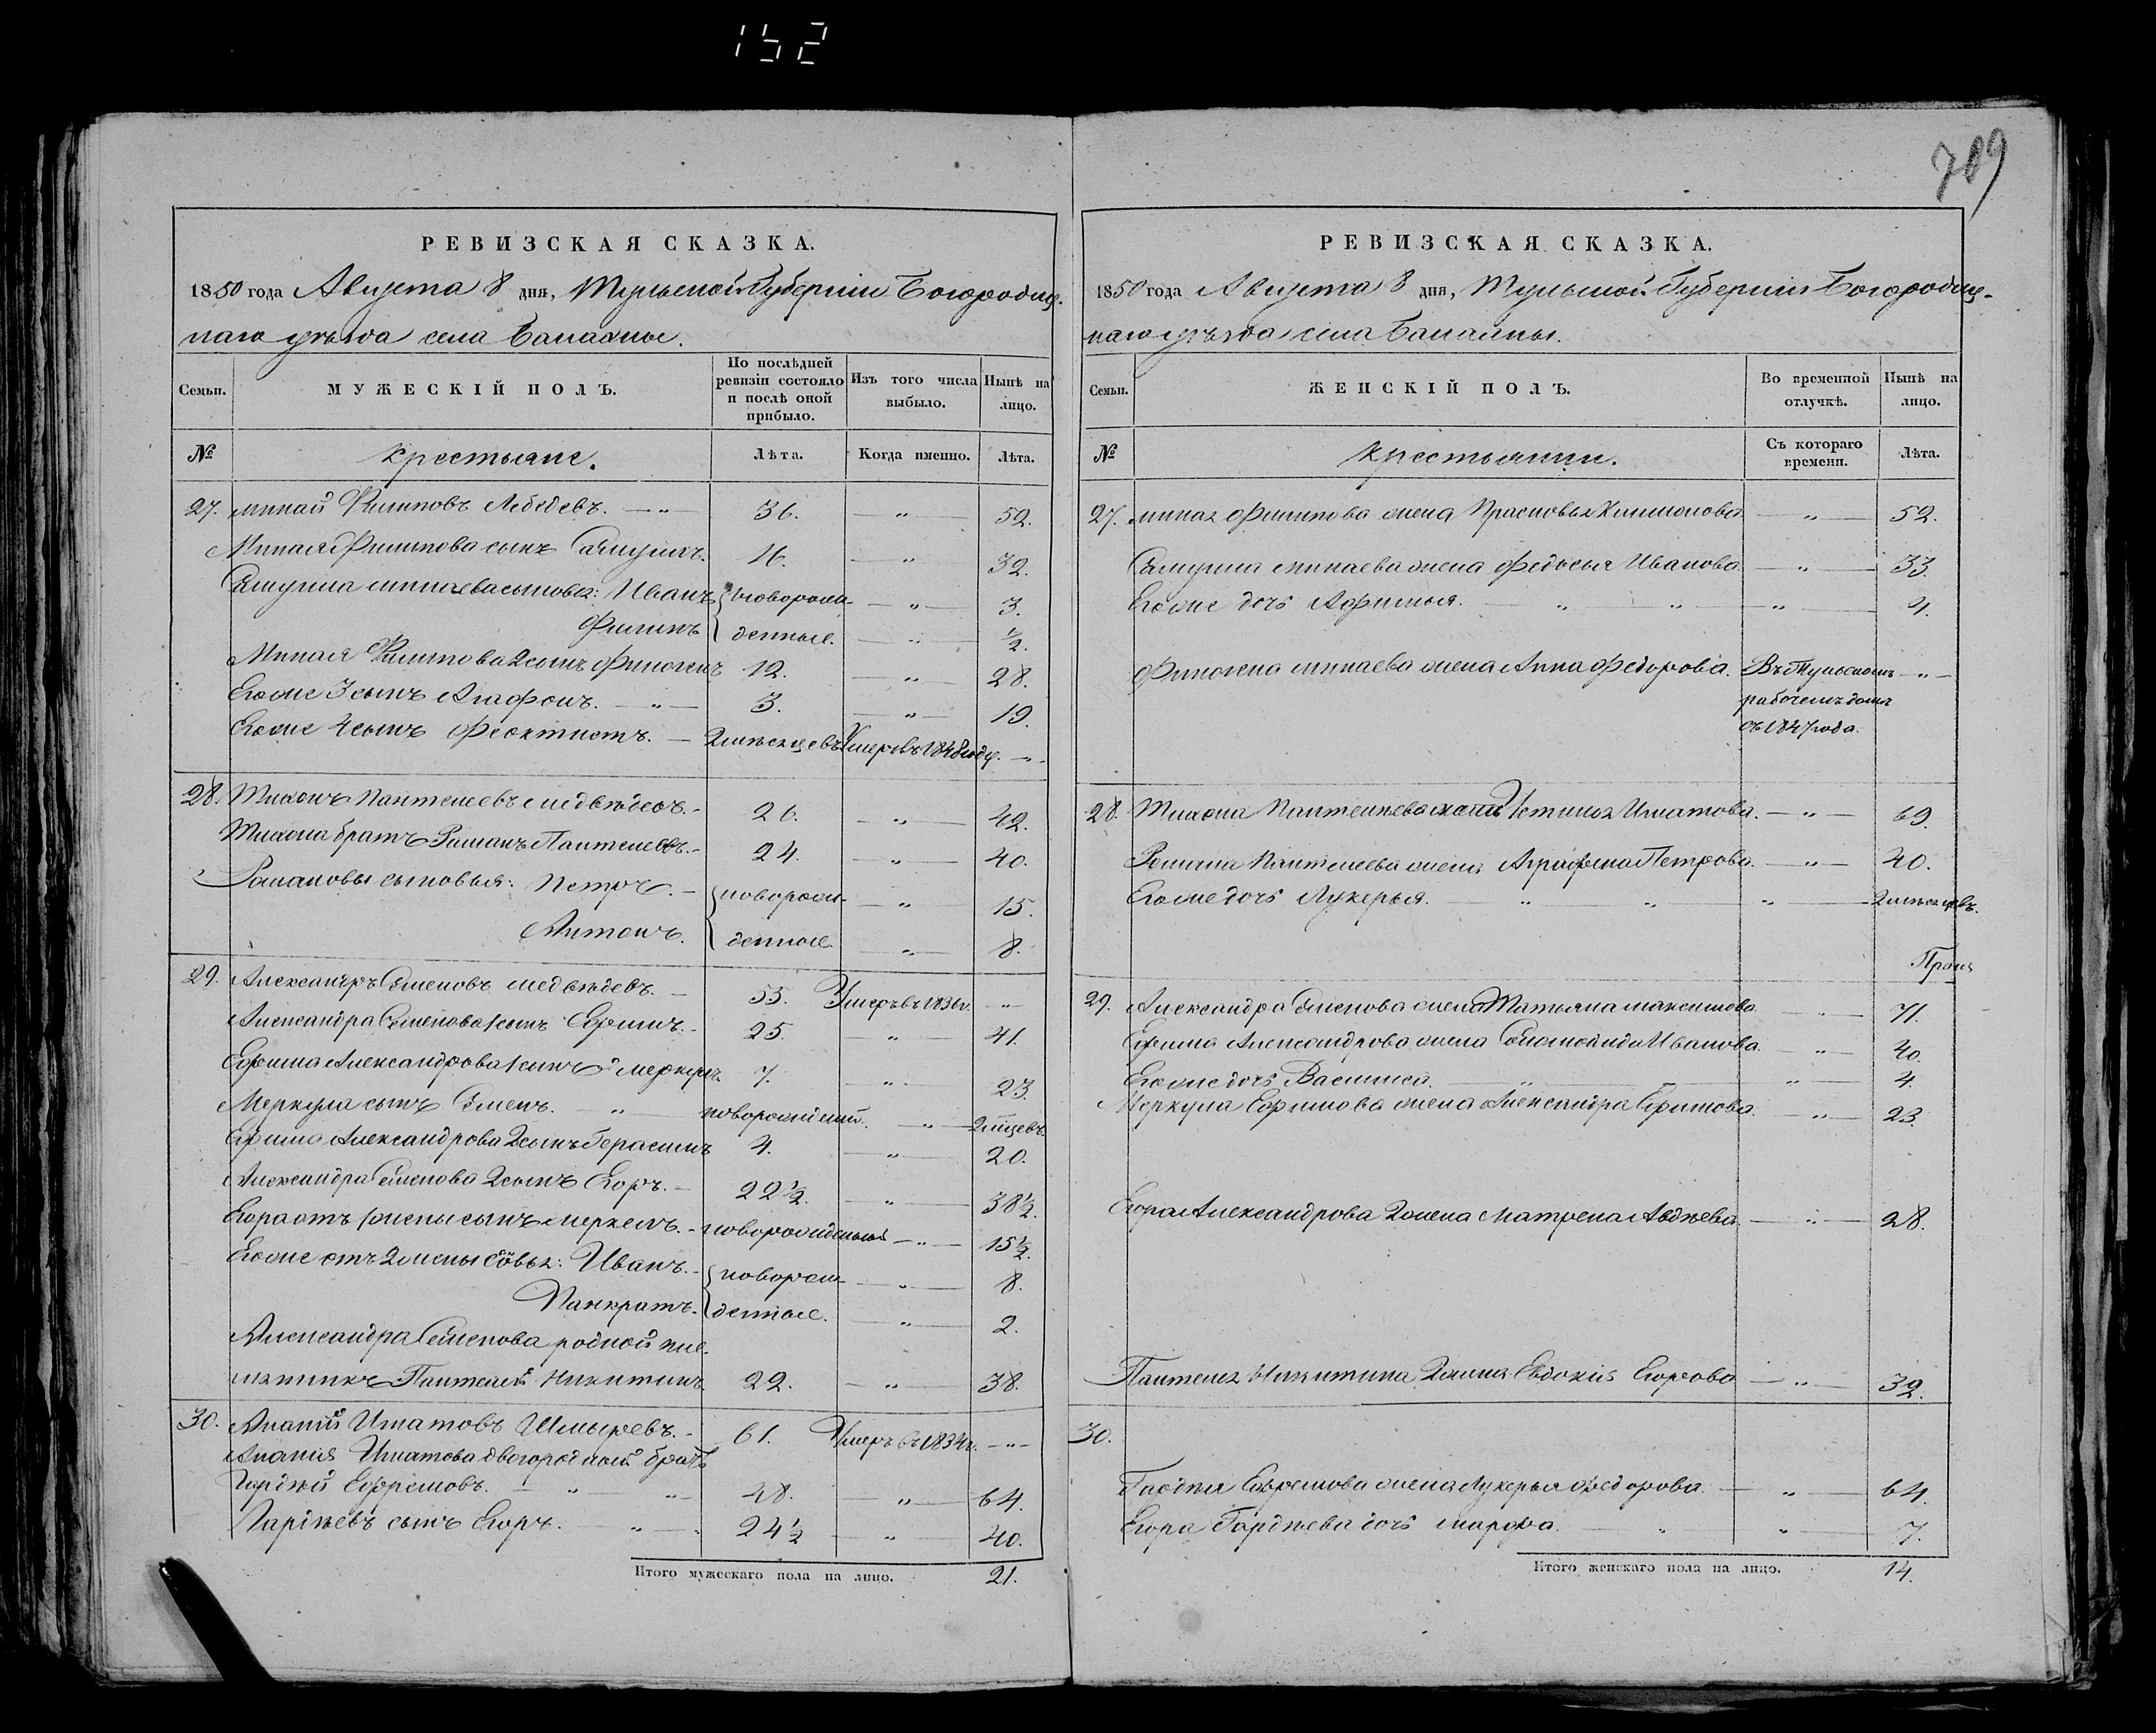 152
789
РЕВИЗСКАЯ СКАЗКА.
1850 года Августа 8 дня, Тульской Губерніи Богородиц-
каго уѣзда села
Семьи.
МУЖЕСКІЙ ПОЛЪ.
По послѣдней ревизіи состояло и послѣ оной прибыло.
Изъ того числа выбыло.
Нынѣ на лицо.
№
крестьяне.
Лѣта.
Когда именно.
Лѣта.
27. Минай Филиповъ Лебедевъ. — „ — 36. — „ — 52.
Миная Филипова сынъ 16. — „ — 32.
Минаева сыновья: Иванъ новорож- — „ — 3.
Филипъ денные. — „ — ½.
Миная Филипова 2 сынъ Финогенъ 12. — „ — 28.
Егоже 3 сынъ Агафонъ. — „ — 3. — „ — 19.
Егоже 4 сынъ Феоктистъ. — 2 мѣсяцевъ Умеръ въ 1848 году. — „ —
28. Тихонъ Пантелеевъ Медвѣдевъ. — 26. — „ — 42.
Тихона братъ Романъ Пантелеевъ. — 24. — „ — 40.
Романовы сыновья: Петръ. — новорож- — „ — 15.
Антонъ. денные — „ — 8.
29. Александръ Семеновъ Медвѣдевъ. — 55. Умеръ въ 1836 г. — „ —
Александра Семенова 1 сынъ Ефимъ. — 25. — „ — 41.
Ефима Александрова 1 сынъ Меркулъ 7. — „ — 23.
Меркула сынъ Семенъ. — „ — новорожденный. — „ — 2 мцевъ.
Ефима Александрова 2 сынъ Герасимъ 4. — „ — 20.
Александра Семенова 2 сынъ Егоръ. — 22½. — „ — 38½.
Егора отъ 1 жены сынъ Меркелъ. — новорожденный — „ — 15½.
Егоже отъ 2 жены Сыовья: Иванъ. — новорож- — „ — 8.
Панкратъ. денные. — „ — 2.
Александра Семенова родной пле-
мянникъ Пантелей Никитинъ. 22. — „ — 38.
30. Ананій Игнатовъ Шмыревъ. — 61. Умеръ въ 1834 г. — „ —
Ананія Игнатова двоюродный братъ
Гордѣй Ефремовъ. — „ — „ 48. — „ — 64.
Гордѣевъ сынъ Егоръ. — „ — 24½ — „ — 40.
Итого мужескаго пола на лицо. 21.
РЕВИЗСКАЯ СКАЗКА.
1850 года Августа 8 дня, Тульской Губерніи Богородиц-
каго уѣзда села
Семьи.
ЖЕНСКІЙ ПОЛЪ.
Во временной отлучкѣ.
Нынѣ на лицо.
№
крестьянки.
Съ котораго времени.
Лѣта.
27. Миная Филипова жена Прасковья — „ — 52.
Минаева жена Федосья Иванова. — „ — 33.
Егоже дочь Афимья. — „ — „ — „ — 4.
Финогена Минаева жена Анна Федорова. Въ Тульскомъ — „ —
рабочемъ домѣ
съ 1847 года.
28. Тихона Пантелеева Устинья Игнатова. — „ — 69.
Романа Пантелеева жена Аграфена Петрова. — „ — 40.
Егоже дочь Лукерья. „ — „ — „ — 2 мѣсяцевъ.
29. Александра Семенова жена Татьяна Максимова. — „ — 71.
Ефима Александрова жена Соломонида Иванова. — „ — 40.
Егоже дочь Василиса. — „ — „ — 4.
Меркула Ефимова жена Александра Ефимова. — „ — 23.
Егора Александрова 2 жена Матрена Авдѣева. — „ — 28.
Пантелея Никитина 2 жена Евдокія Егорова — „ — 32.
30.
Гордѣя Ефремова жена Лукерья Федорова. — „ — 64.
Егора Гордѣева дочь Марфа. — „ — „ — 7.
Итого женскаго пола на лицо. 14.